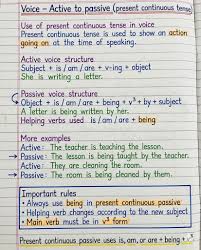 Voice – Active to passive (present continuous tense)
Use of present continuous tense in voice
Present continuous tense is used to show an action
going on at the time of speaking.
Active voice structure
Subject + is / am / are + v-ing + object
She is writing a letter.
Passive voice structure
Object + is / am / are + being + v³ + by + subject
A letter is being written by her.
Helping verbs used is / am / are + being
More examples
Active: The teacher is teaching the lesson.
Passive: The lesson is being taught by the teacher.
Active: They are cleaning the room.
Passive: The room is being cleaned by them.
Important rules
• Always use being in present continuous passive
• Helping verb changes according to the new subject
• Main verb must be in v³ form
Present continuous passive uses is, am, or are + being +